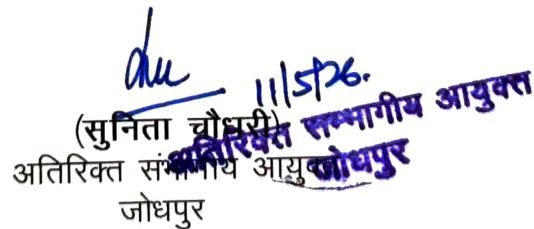 11/5/26.
(सुनिता चौधरी)
अतिरिक्त संभागीय आयुक्त
जोधपुर
अतिरिक्त सम्भागीय आयुक्त
जोधपुर